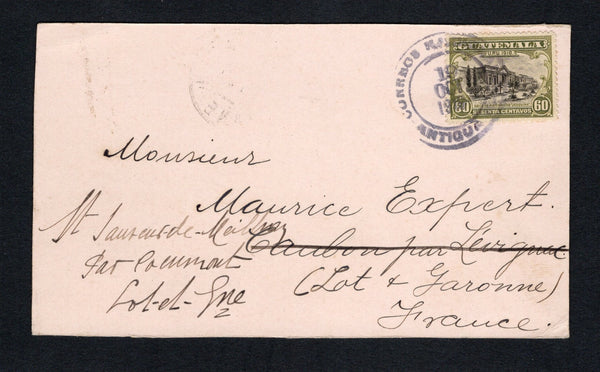 CORREOS
ANTIGUA
GUATEMALA
U.P.U. 1902
60 60
SESENTA CENTAVOS
Monsieur
Maurice Expert.
Caubon par Lévignac
(Lot & Garonne)
France.
St Sauveur-de-Meilhan
Par Cocumont
Lot-et-Gne